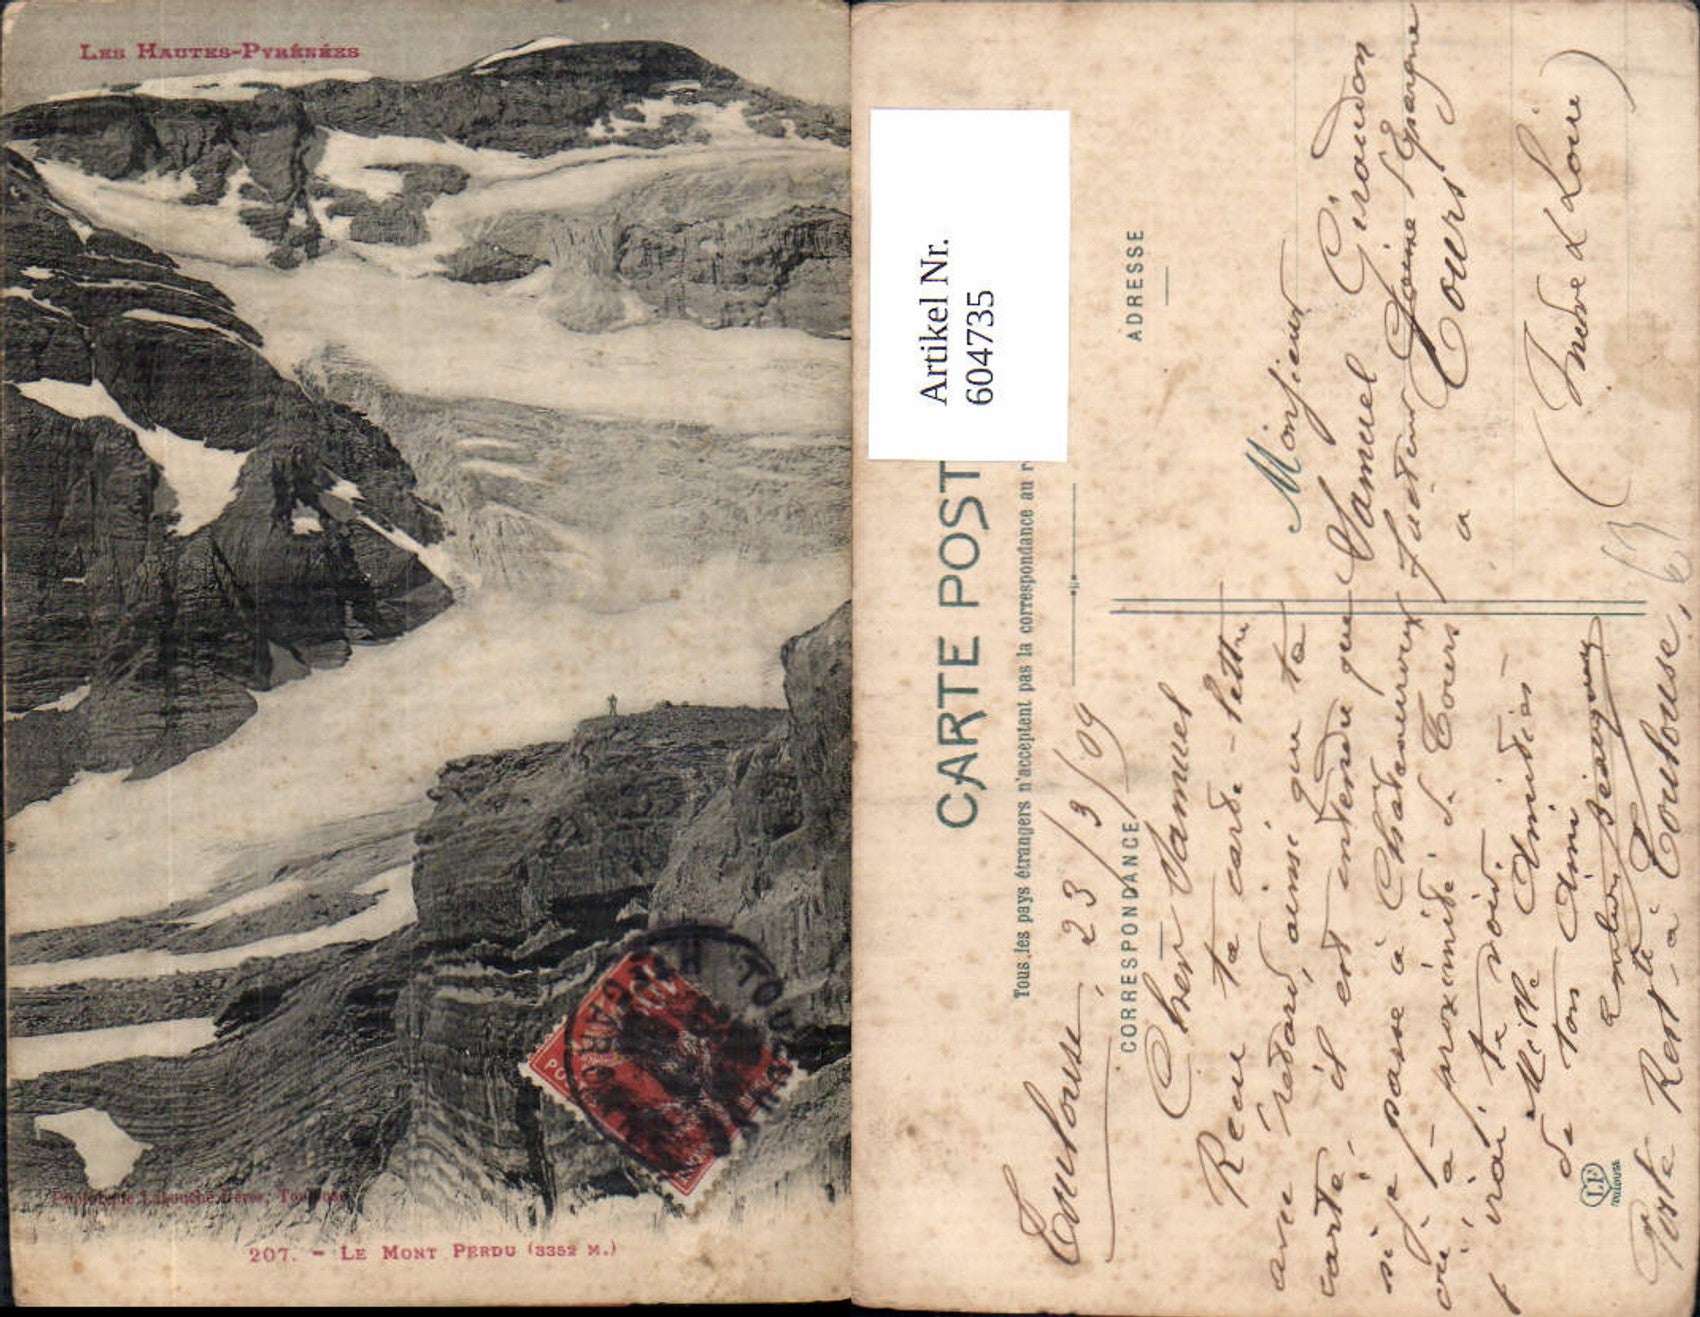 LES HAUTES-PYRÉNÉES
POSTES
TOULOUSE
GARONNE
Phototypie Labouche frères, Toulouse
207. - LE MONT PERDU (3352 M.)
Artikel Nr.
604735
CARTE POST
Tous les pays étrangers n'acceptent pas la correspondance au r
CORRESPONDANCE
ADRESSE
Toulouse 23/3/09
Cher Samuel
Recu ta carte-lettre
avec retard, ainsi que ta
carte, il est entendu que
si je passe à Chateauroux
ou à proximité de Tours
j'irai te voir.
Mille Amitiés
de ton Ami
Poste Restte à Toulouse,
Monsieur
Samuel Giraudon
facteur Caisse Epargne
à Tours
(Indre & Loire)
63
LF
TOULOUSE